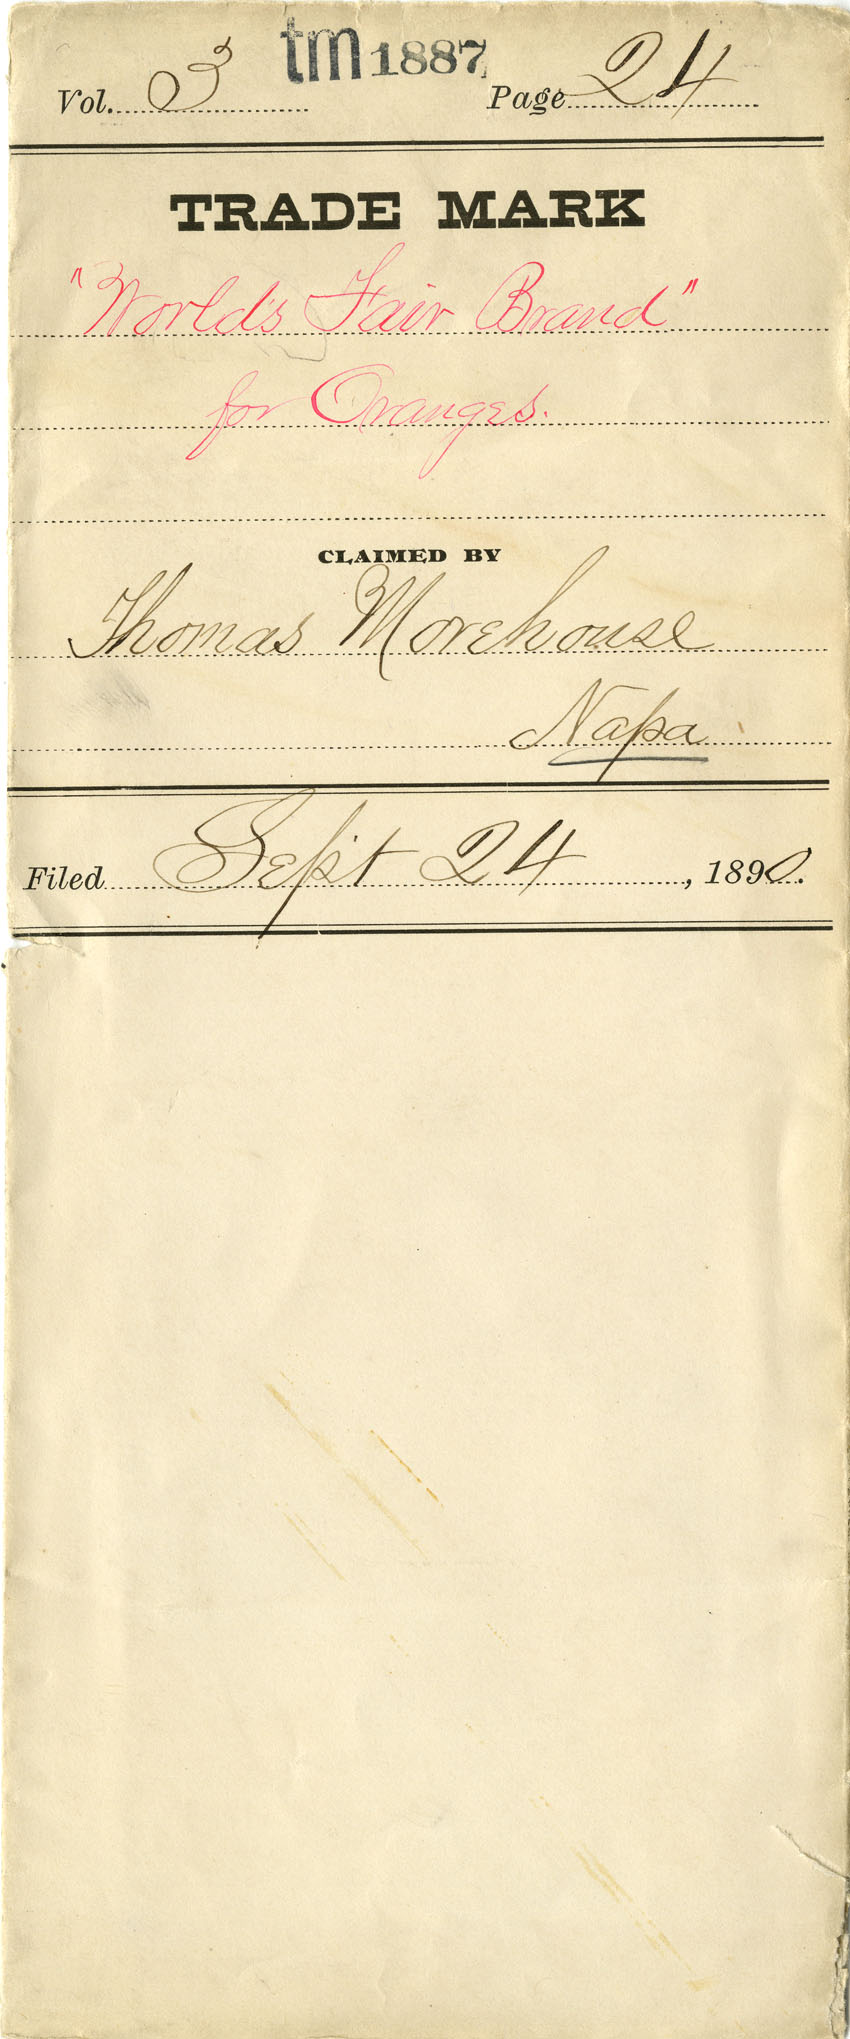 Vol. 3 tm 1887 Page 24
TRADE MARK
"World's Fair Brand"
for Oranges.
CLAIMED BY
Thomas Morehouse
Napa
Filed Sept 24, 1890.